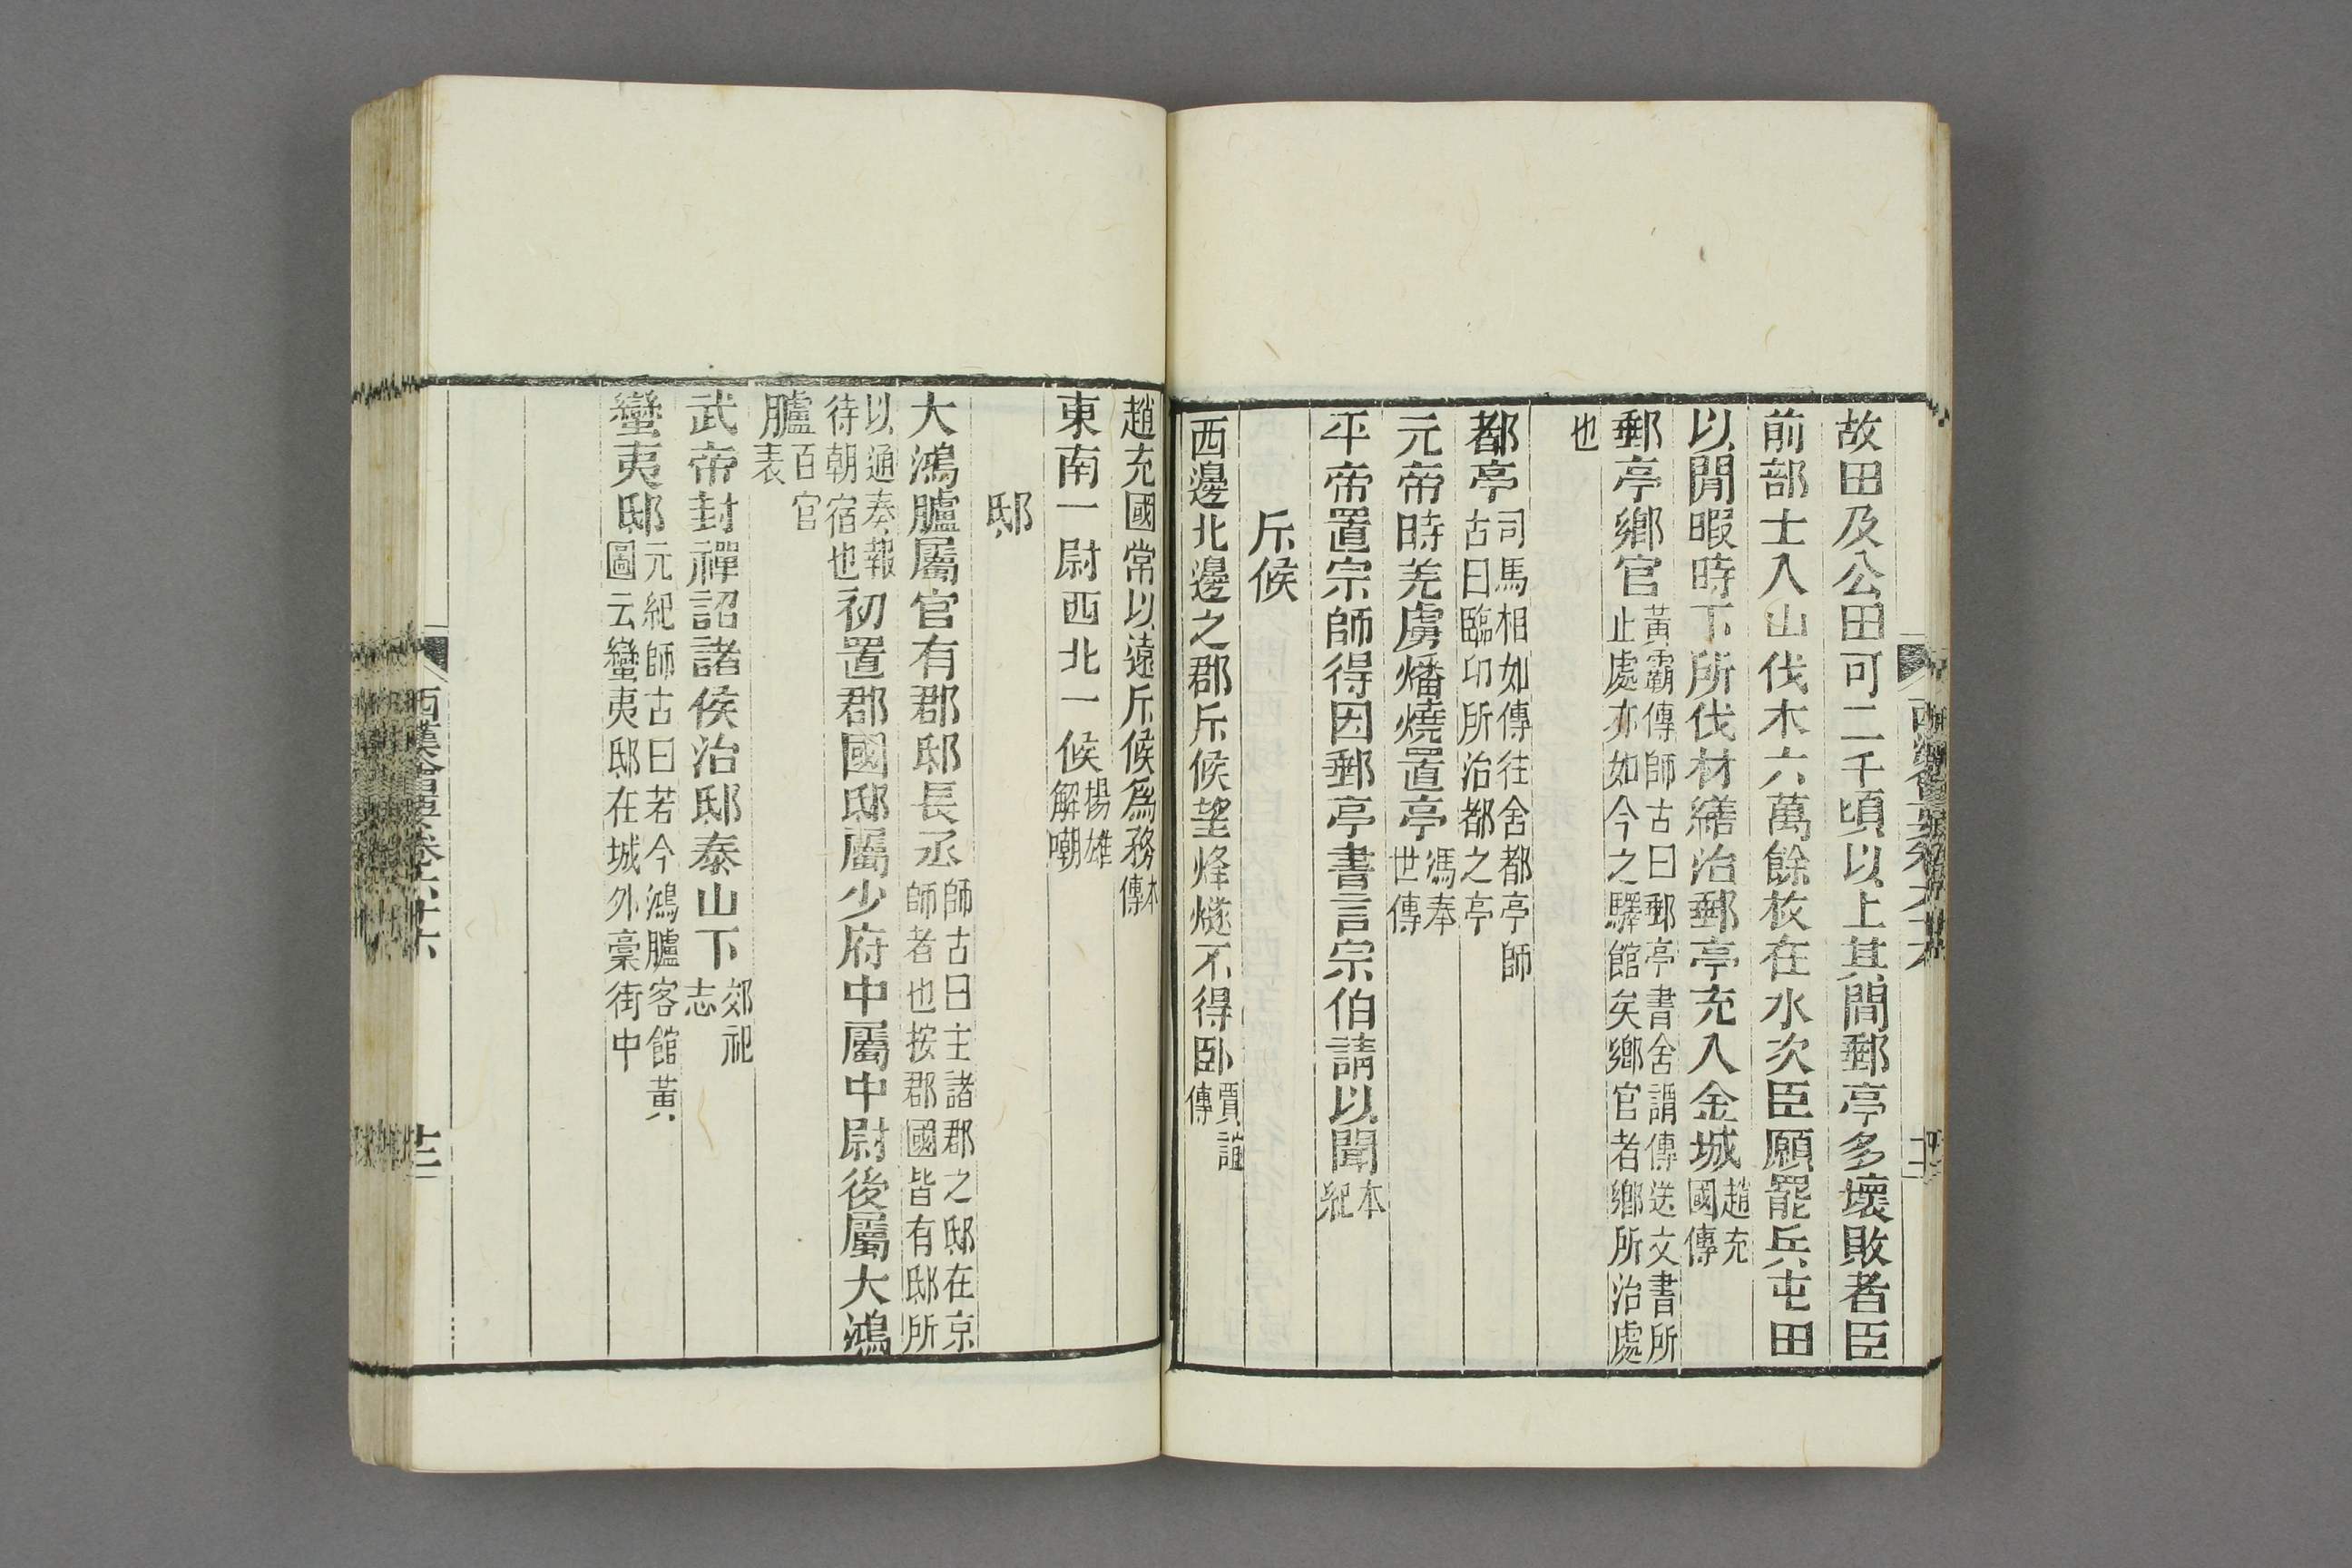 故田及公田可二千頃以上其間郵亭多壞敗者臣
前部士入山伐木六萬餘枚在水次臣願罷兵屯田
以閒暇時下所伐材繕治郵亭充入金城趙充國傳
郵亭鄉官黃霸傳師古曰郵亭書舍謂傳送文書所止處亦如今之驛館矣鄉官者鄉所治處
也
都亭司馬相如傳往舍都亭師古曰臨卭所治都之亭
元帝時羌虜燔燒置亭馮奉世傳
平帝置宗師得因郵亭書言宗伯請以聞本紀
斥候
西邊北邊之郡斥候望烽燧不得臥賈誼傳
趙充國常以遠斥候爲務本傳
東南一尉西北一候揚雄解嘲
邸
大鴻臚屬官有郡邸長丞師古曰主諸郡之邸在京師者也按郡國皆有邸所
以通奏報待朝宿也初置郡國邸屬少府中屬中尉後屬大鴻
臚百官表
武帝封禪詔諸侯治邸泰山下郊祀志
蠻夷邸元紀師古曰若今鴻臚客館黃圖云蠻夷邸在城外藁街中
西漢會要卷六十六